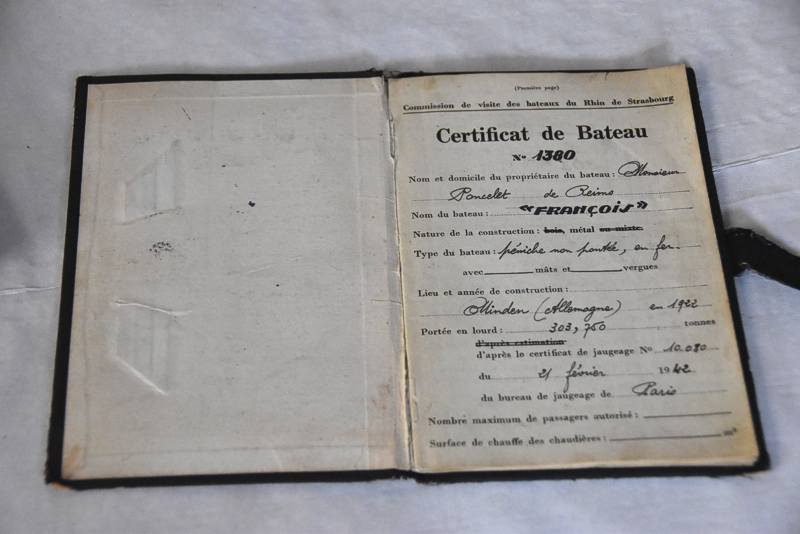 (Première page)
Commission de visite des bateaux du Rhin de Strasbourg
Certificat de Bateau
N° 1380
Nom et domicile du propriétaire du bateau : Monsieur
Poncelet de Reims
Nom du bateau : "FRANÇOIS"
Nature de la construction : bois, métal ou mixte.
Type du bateau : péniche non pontée, en fer.
avec mâts et vergues
Lieu et année de construction :
Minden (Allemagne) en 1922
Portée en lourd : 303,750 tonnes
d'après estimation
d'après le certificat de jaugeage N° 10.080
du 21 février 1942
du bureau de jaugeage de Paris
Nombre maximum de passagers autorisé :
Surface de chauffe des chaudières : m²